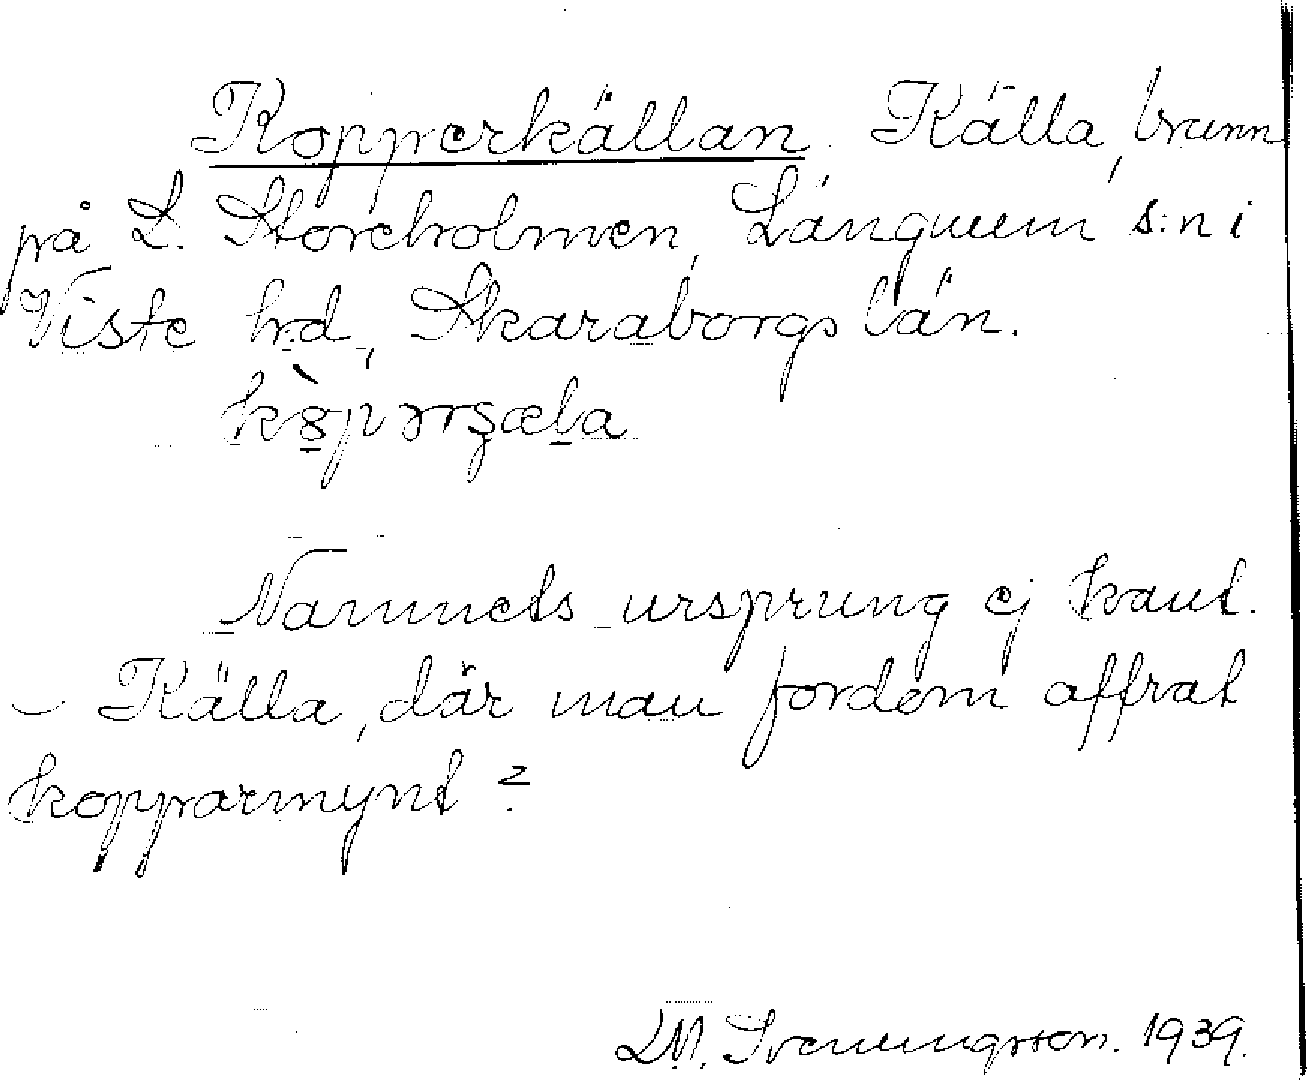 Kopperkällan. Källa, brunn
på L. Storeholmen, Långnum s:n i
Viste hd, Skaraborgs län.
Namnets ursprung ej känt.
– Källa, där man fordom offrat
kopparmynt?
Svenungsson. 1939.